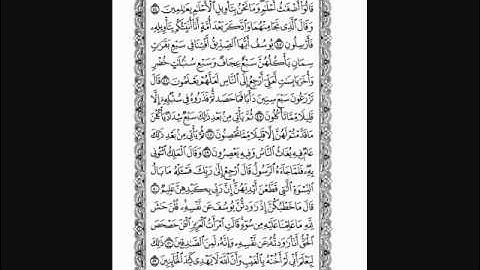 قَالُوٓا۟ أَضْغَٰثُ أَحْلَٰمٍ وَمَا نَحْنُ بِتَأْوِيلِ ٱلْأَحْلَٰمِ بِعَٰلِمِينَ ٤٤
وَقَالَ ٱلَّذِى نَجَا مِنْهُمَا وَٱدَّكَرَ بَعْدَ أُمَّةٍ أَنَا۠ أُنَبِّئُكُم بِتَأْوِيلِهِۦ
فَأَرْسِلُونِ ٤٥ يُوسُفُ أَيُّهَا ٱلصِّدِّيقُ أَفْتِنَا فِى سَبْعِ بَقَرَٰتٍ
سِمَانٍ يَأْكُلُهُنَّ سَبْعٌ عِجَافٌ وَسَبْعِ سُنۢبُلَٰتٍ خُضْرٍ
وَأُخَرَ يَابِسَٰتٍ لَّعَلِّىٓ أَرْجِعُ إِلَى ٱلنَّاسِ لَعَلَّهُمْ يَعْلَمُونَ ٤٦ قَالَ
تَزْرَعُونَ سَبْعَ سِنِينَ دَأَبًا فَمَا حَصَدتُّمْ فَذَرُوهُ فِى سُنۢبُلِهِۦٓ إِلَّا
قَلِيلًا مِّمَّا تَأْكُلُونَ ٤٧ ثُمَّ يَأْتِى مِنۢ بَعْدِ ذَٰلِكَ سَبْعٌ شِدَادٌ يَأْكُلْنَ
مَا قَدَّمْتُمْ لَهُنَّ إِلَّا قَلِيلًا مِّمَّا تُحْصِنُونَ ٤٨ ثُمَّ يَأْتِى مِنۢ بَعْدِ ذَٰلِكَ
عَامٌ فِيهِ يُغَاثُ ٱلنَّاسُ وَفِيهِ يَعْصِرُونَ ٤٩ وَقَالَ ٱلْمَلِكُ ٱئْتُونِى
بِهِۦ فَلَمَّا جَآءَهُ ٱلرَّسُولُ قَالَ ٱرْجِعْ إِلَىٰ رَبِّكَ فَسْـَٔلْهُ مَا بَالُ
ٱلنِّسْوَةِ ٱلَّٰتِى قَطَّعْنَ أَيْدِيَهُنَّ إِنَّ رَبِّى بِكَيْدِهِنَّ عَلِيمٌ ٥٠
قَالَ مَا خَطْبُكُنَّ إِذْ رَٰوَدتُّنَّ يُوسُفَ عَن نَّفْسِهِۦ قُلْنَ حَٰشَ
لِلَّهِ مَا عَلِمْنَا عَلَيْهِ مِن سُوٓءٍ قَالَتِ ٱمْرَأَتُ ٱلْعَزِيزِ ٱلْـَٰٔنَ حَصْحَصَ
ٱلْحَقُّ أَنَا۠ رَٰوَدتُّهُۥ عَن نَّفْسِهِۦ وَإِنَّهُۥ لَمِنَ ٱلصَّٰدِقِينَ ٥١ ذَٰلِكَ
لِيَعْلَمَ أَنِّى لَمْ أَخُنْهُ بِٱلْغَيْبِ وَأَنَّ ٱللَّهَ لَا يَهْدِى كَيْدَ ٱلْخَآئِنِينَ ٥٢